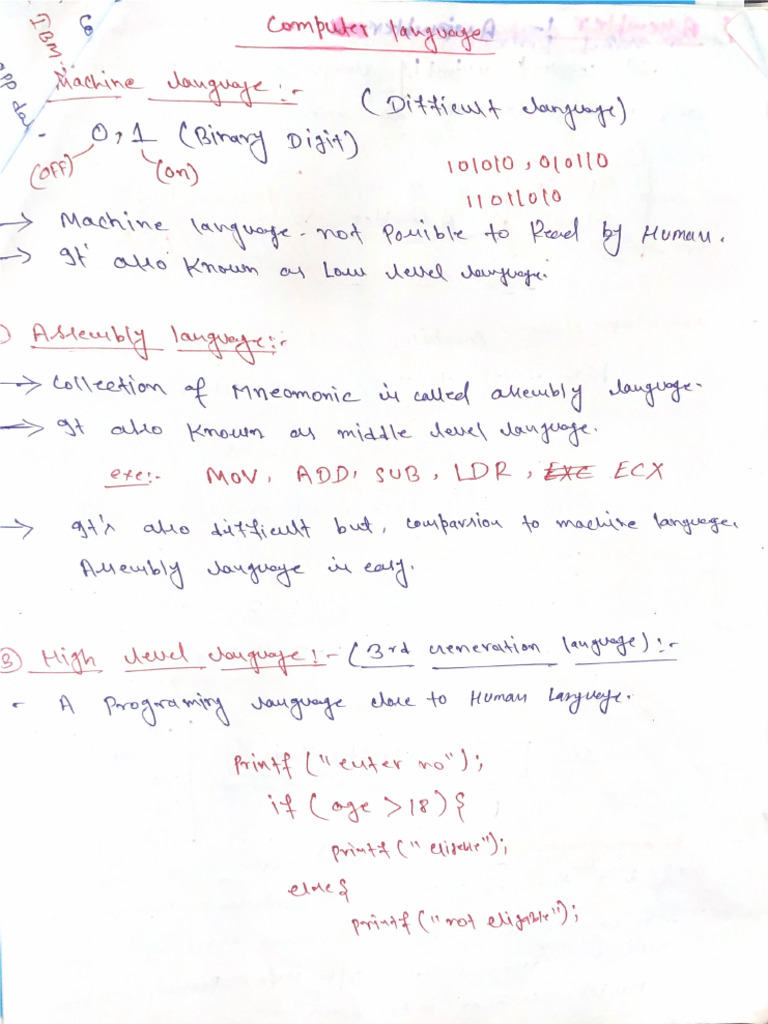 Computer language
IBM
Machine language :-
(Difficult language)
- 0, 1 (Binary Digit)
(OFF) (on)
101010, 010110
11011010
→ Machine language - not possible to Read by Human.
→ It' also known as Low level language.
) Assembly language :-
→ Collection of Mneomonic is called assembly language.
→ It also known as middle level language.
exe:- MOV, ADD, SUB, LDR, EXE ECX
→ It's also difficult but, comparsion to machine language,
Assembly language is easy.
③ High level language :- (3rd Generation language) :-
- A Programing language close to Human language.
printf ("enter no");
if (age > 18) {
printf ("eligeble");
else {
printf ("not eligable");